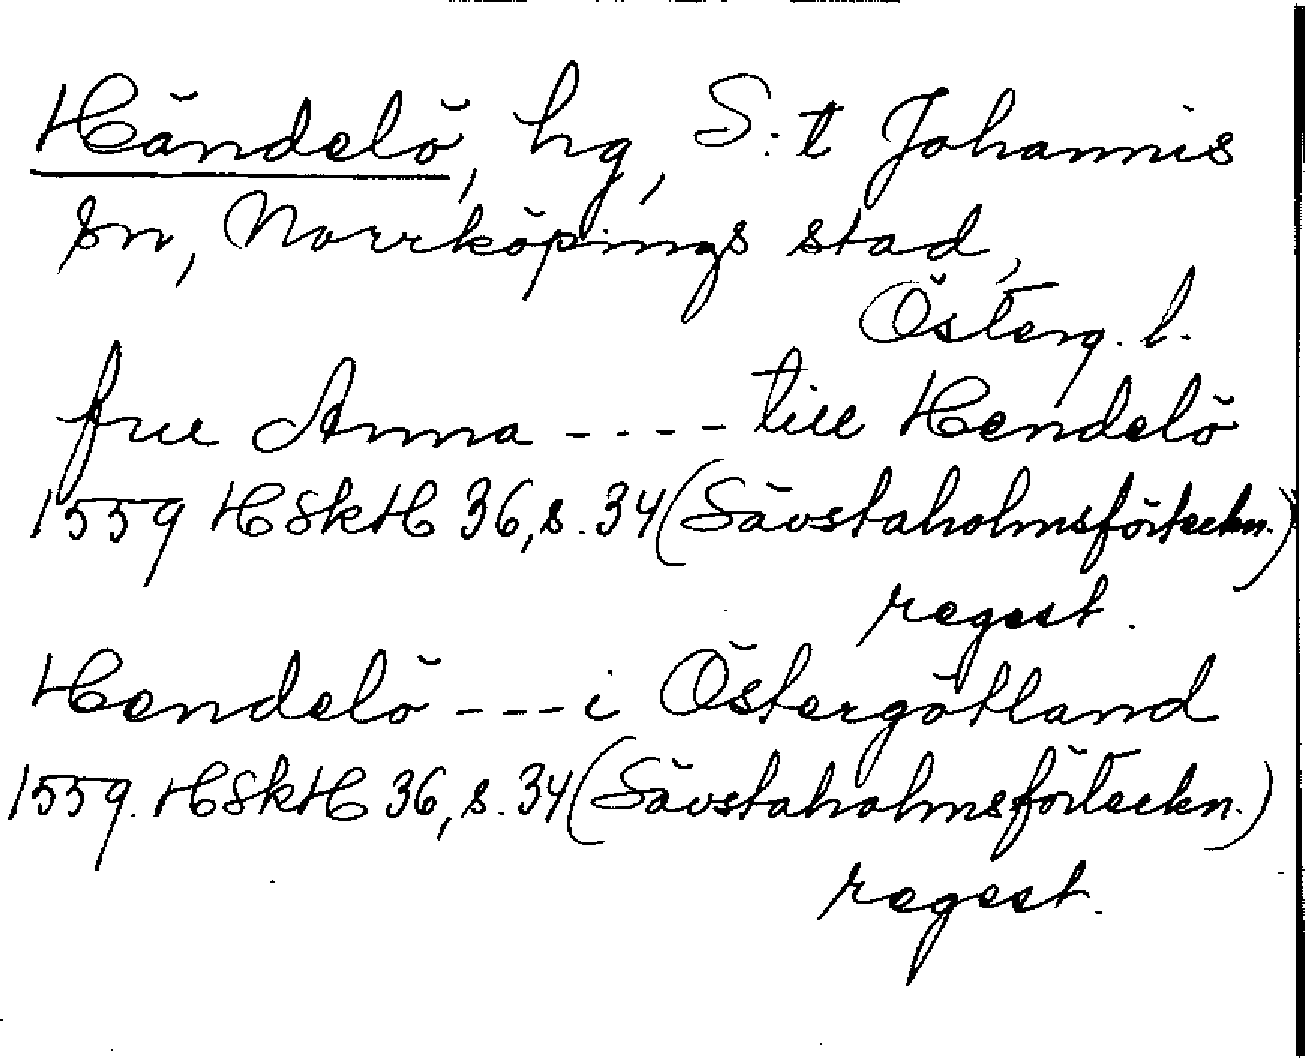 Händelö, hg, S:t Johannis
sn, Norrköpings stad,
Österg. l.
frue Anna - - - - till Hendelö
1559 HSkH 36, s. 34 (Sävstaholmsförteckn.)
regest.
Hendelö - - - i Östergötland
1559. HSkH 36, s. 34 (Sävstaholmsförteckn.)
regest.